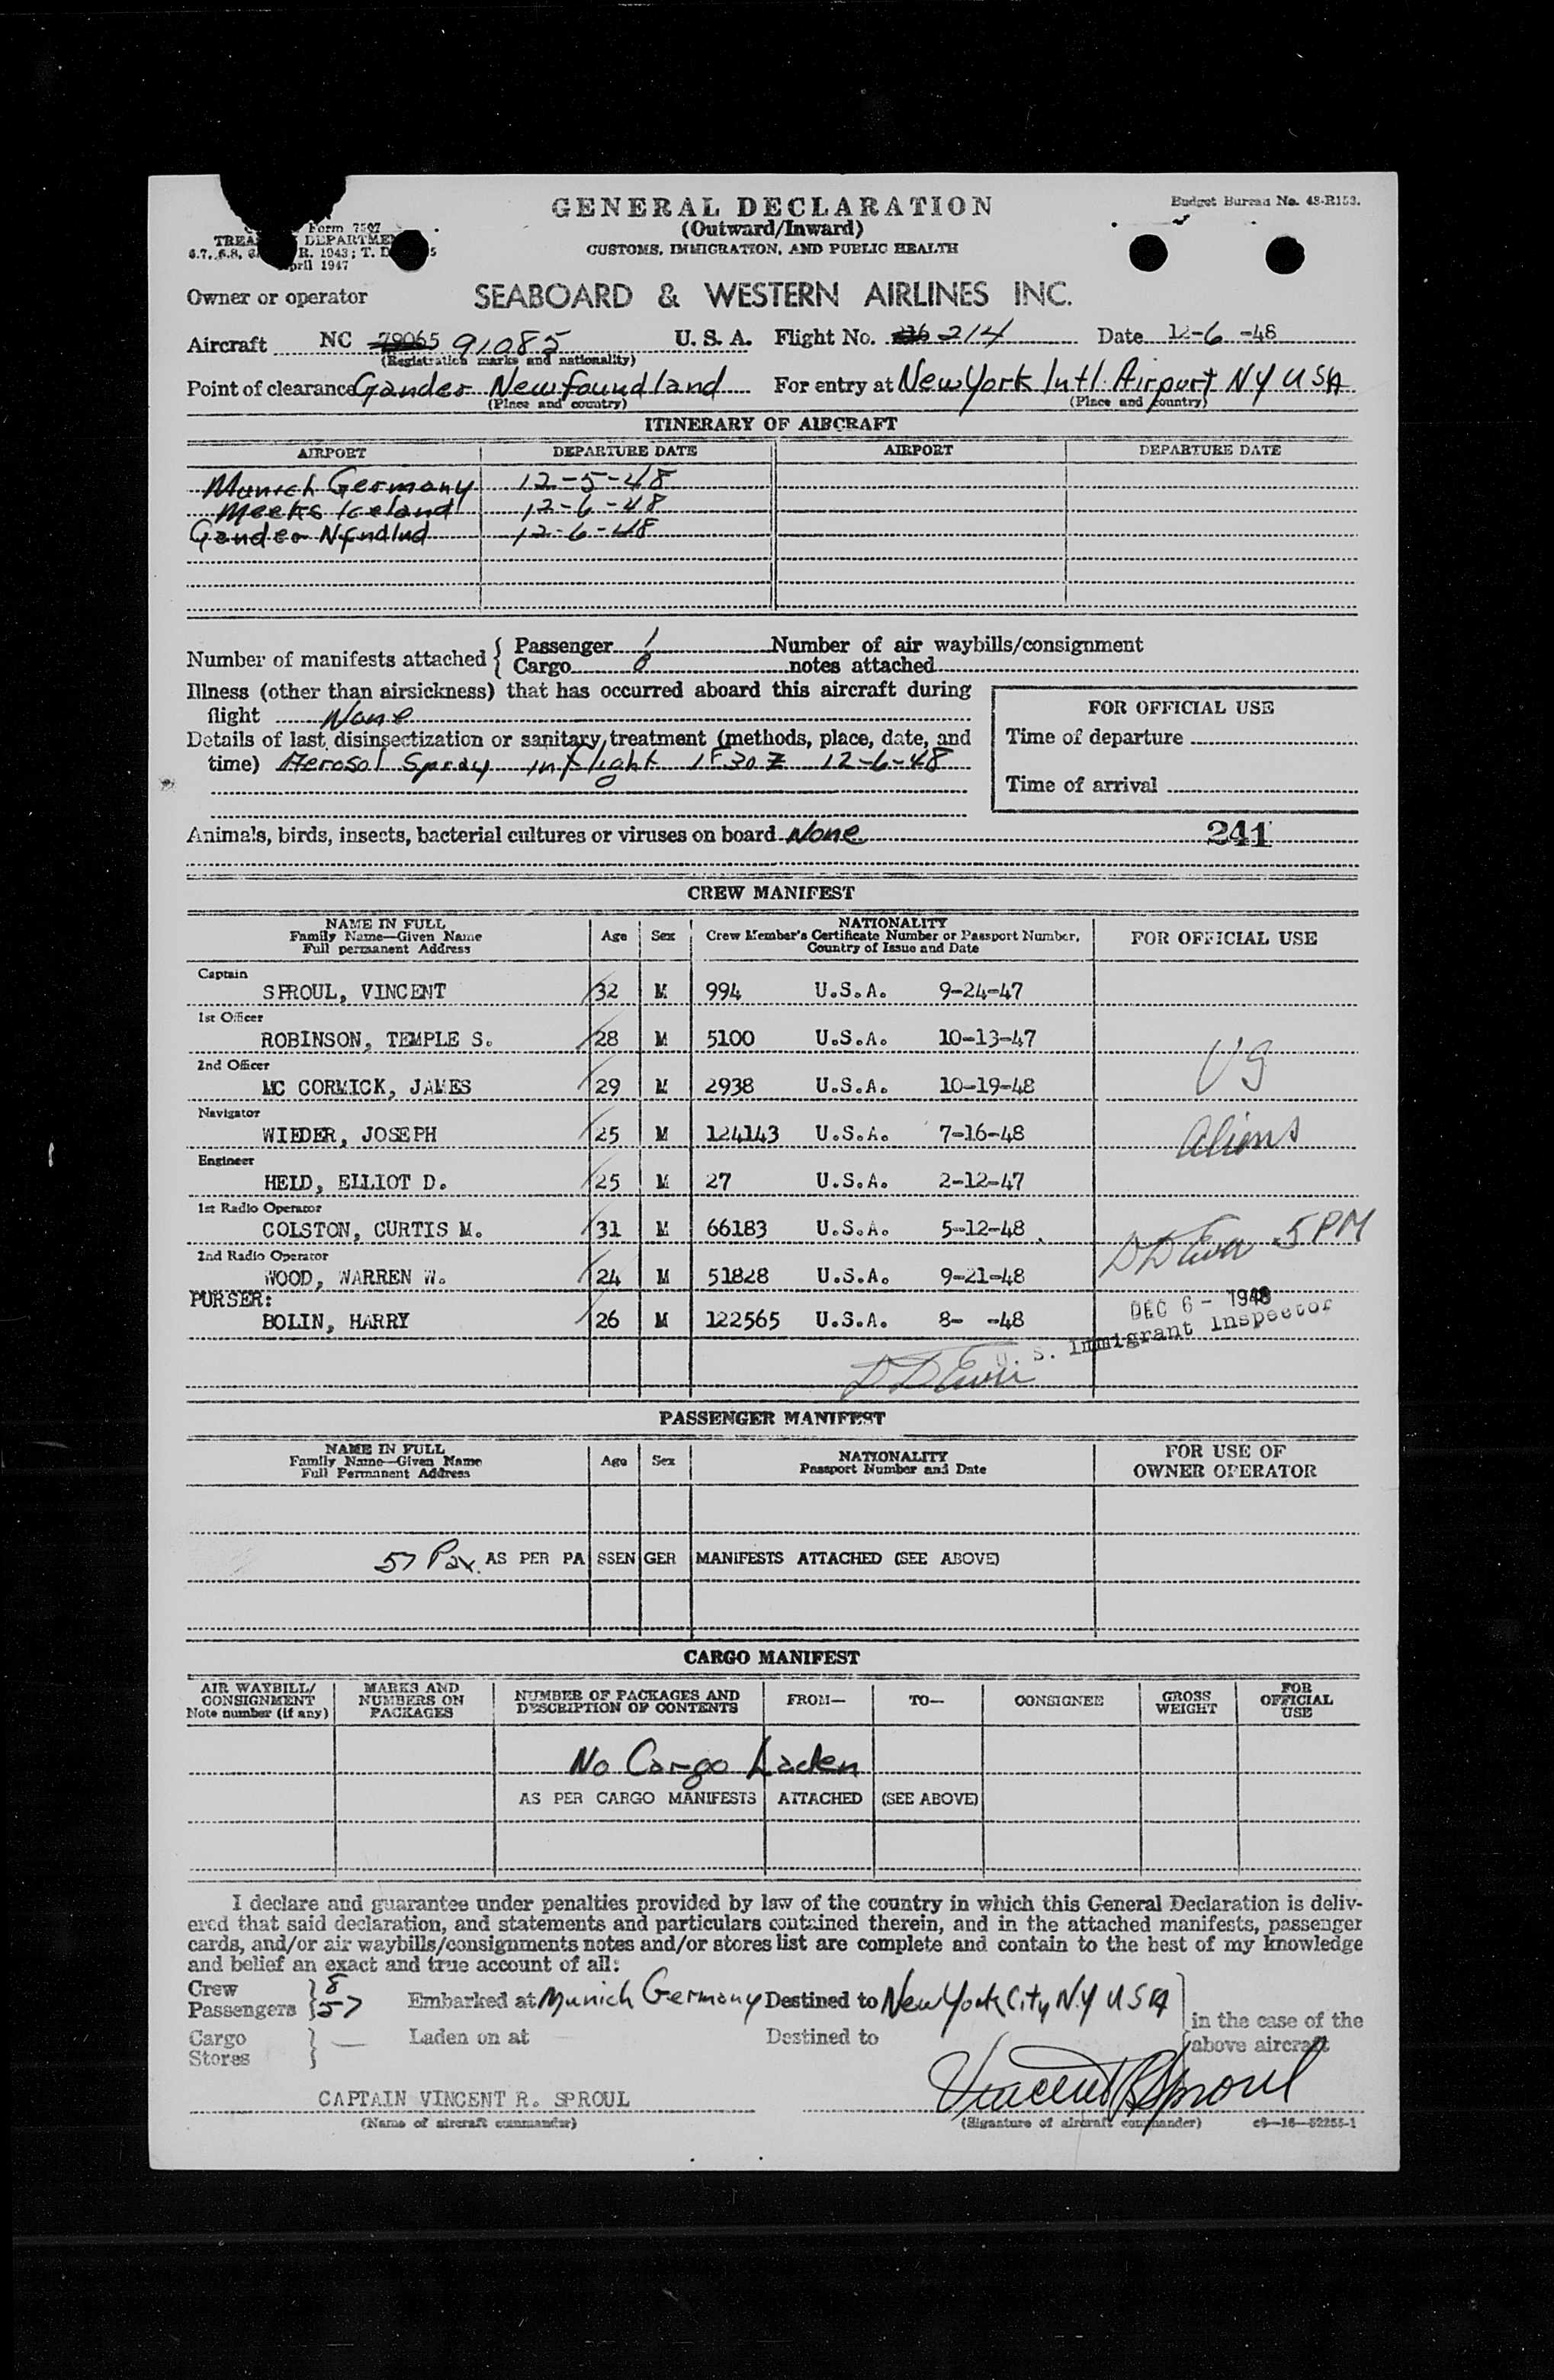 Form 7507
TREA DEPARTME
R. 1943; T. D
pril 1947
GENERAL DECLARATION
(Outward/Inward)
CUSTOMS, IMMIGRATION, AND PUBLIC HEALTH
Budget Bureau No. 48-R153.
Owner or operator SEABOARD & WESTERN AIRLINES INC.
Aircraft NC 79065 91085 U. S. A. Flight No. 214 Date 12-6-48
(Registration marks and nationality)
Point of clearance Gander Newfoundland For entry at New York Intl. Airport NY USA
(Place and country) (Place and country)
ITINERARY OF AIRCRAFT
AIRPORT DEPARTURE DATE AIRPORT DEPARTURE DATE
Munich Germany 12-5-48
Meeks Iceland 12-6-48
Gander Nfndlnd 12-6-48
Number of manifests attached { Passenger 1 Number of air waybills/consignment
Cargo 0 notes attached
Illness (other than airsickness) that has occurred aboard this aircraft during
flight None
Details of last disinsectization or sanitary treatment (methods, place, date, and
time) Aerosol Spray inflight Z 12-6-48
FOR OFFICIAL USE
Time of departure
Time of arrival
Animals, birds, insects, bacterial cultures or viruses on board None 241
CREW MANIFEST
NAME IN FULL
Family Name—Given Name
Full permanent Address
Age Sex
NATIONALITY
Crew Member's Certificate Number or Passport Number,
Country of Issue and Date
FOR OFFICIAL USE
Captain
SPROUL, VINCENT 32 M 994 U.S.A. 9-24-47
1st Officer
ROBINSON, TEMPLE S. 28 M 5100 U.S.A. 10-13-47
2nd Officer
MC CORMICK, JAMES 29 M 2938 U.S.A. 10-19-48
US
Navigator
WIEDER, JOSEPH 25 M 124143 U.S.A. 7-16-48
Aliens
Engineer
HELD, ELLIOT D. 25 M 27 U.S.A. 2-12-47
1st Radio Operator
COLSTON, CURTIS M. 31 M 66183 U.S.A. 5-12-48
5 PM
2nd Radio Operator
WOOD, WARREN W. 24 M 51828 U.S.A. 9-21-48
PURSER:
BOLIN, HARRY 26 M 122565 U.S.A. 8- -48
DEC 6 - 1948
U. S. Immigrant Inspector
PASSENGER MANIFEST
NAME IN FULL
Family Name—Given Name
Full Permanent Address
Age Sex
NATIONALITY
Passport Number and Date
FOR USE OF
OWNER OPERATOR
57 Pax. AS PER PASSENGER MANIFESTS ATTACHED (SEE ABOVE)
CARGO MANIFEST
AIR WAYBILL/
CONSIGNMENT
Note number (if any)
MARKS AND
NUMBERS ON
PACKAGES
NUMBER OF PACKAGES AND
DESCRIPTION OF CONTENTS
FROM— TO— CONSIGNEE
GROSS
WEIGHT
FOR
OFFICIAL
USE
No Cargo Laden
AS PER CARGO MANIFESTS ATTACHED (SEE ABOVE)
I declare and guarantee under penalties provided by law of the country in which this General Declaration is deliv-
ered that said declaration, and statements and particulars contained therein, and in the attached manifests, passenger
cards, and/or air waybills/consignments notes and/or stores list are complete and contain to the best of my knowledge
and belief an exact and true account of all:
Crew } 8
Passengers } 57 Embarked at Munich Germany Destined to New York City N.Y USA
in the case of the
above aircraft
Cargo } — Laden on at Destined to
Stores
CAPTAIN VINCENT R. SPROUL Vincent R Sproul
(Name of aircraft commander) (Signature of aircraft commander) c9—16—52255-1